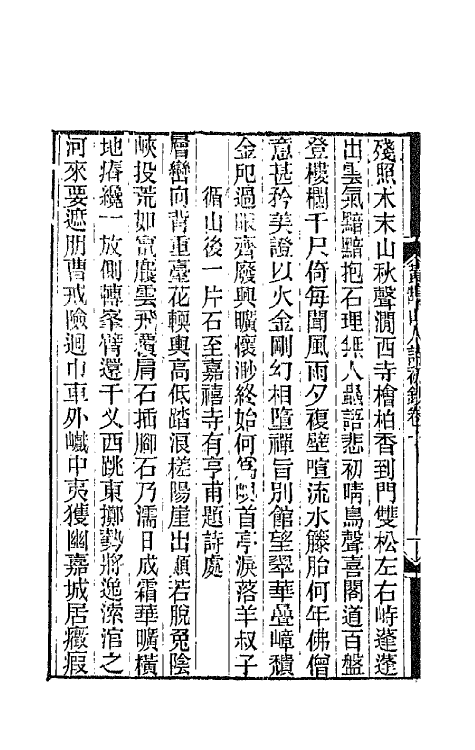 殘照木末山秋聲澗西寺檜柏香到門雙松左右峙蓬蓬
出雲氣黯黯抱石理無人蟲語悲初晴鳥聲喜閣道百盤
登樓欄千尺倚每聞風雨夕複壁喧流水籐胎何年佛僧
意甚矜美證以火金剛幻相墮禪旨別館望翠華疊嶂積
金戺過眼齊廢興曠懷渺終始何為峴首亭淚落羊叔子
循山後一片石至嘉禧寺有亨甫題詩處
層巒向背重臺花輭輿高低踏浪槎陽崖出願若脫兔陰
峽投荒如竄麚雲飛肩石插腳石乃濡日成霜華曠橫
地瘠纔一放側轉峯臂還千义西跳東擲勢將逸滾滾之
河來要遮朋曹戒險迴巾車外巇中夷獲幽嘉城居癥瘕